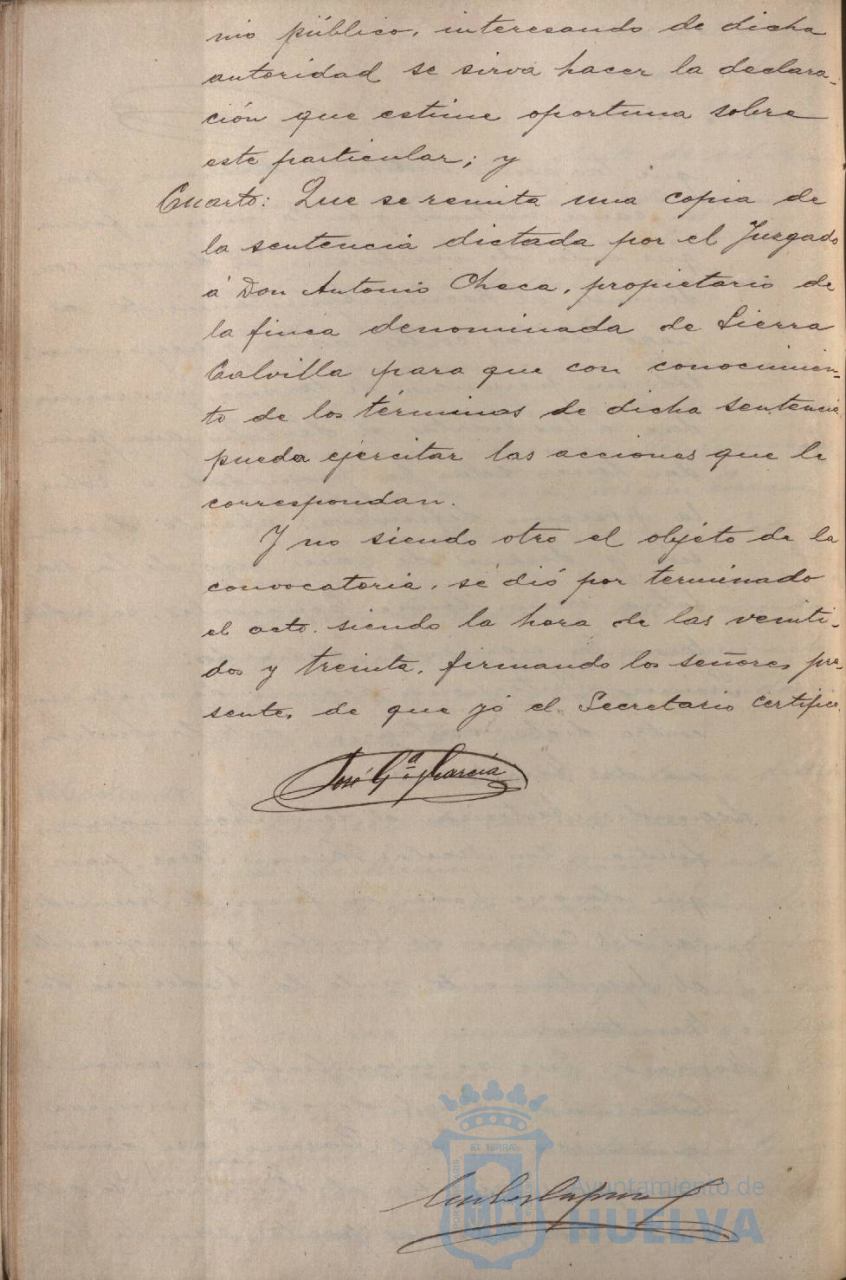 nio público, interesando de dicha
autoridad se sirva hacer la declara-
ción que estime oportuna sobre
este particular; y
Cuarto: Que se remita una copia de
la sentencia dictada por el Juzgado
á Don Antonio Checa, propietario de
la finca denominada de Sierra
Calvilla para que con conocimien-
to de los términos de dicha sentencia
pueda ejercitar las acciones que le
correspondan.
Y no siendo otro el objéto de la
convocatoria, se dió por terminado
el acto, siendo la hora de las veinti-
dos y treinta, firmando los señores pre-
sentes, de que yó el Secretario certifico.
José Gª García
Ayuntamiento de
HUELVA